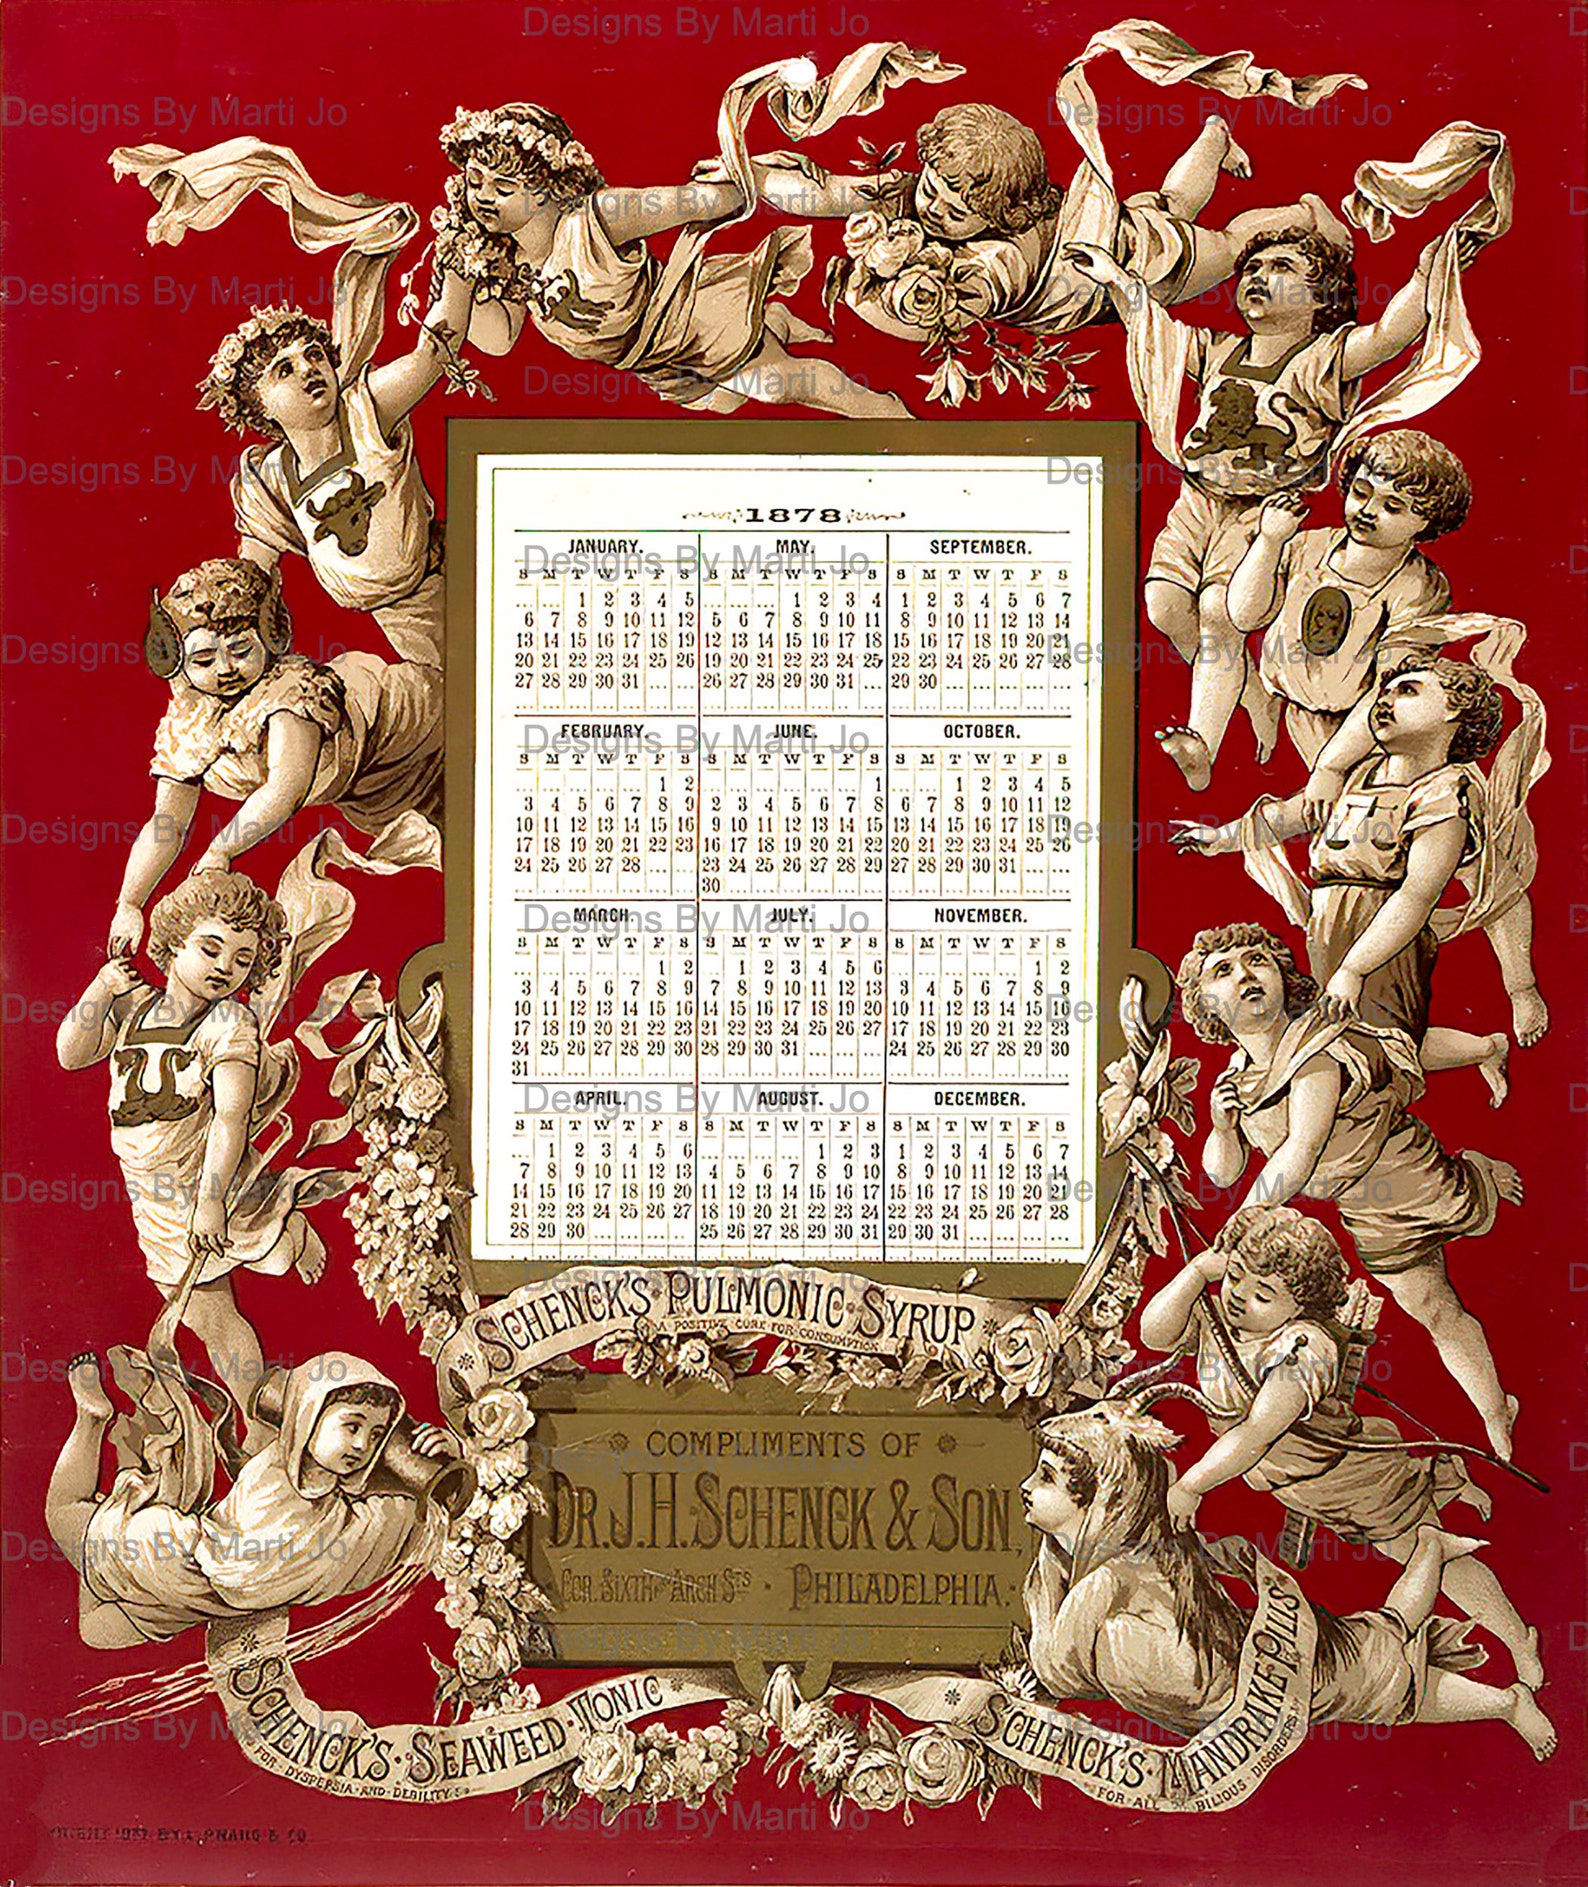 1878
JANUARY.
S M T W T F S
... ... 1 2 3 4 5
6 7 8 9 10 11 12
13 14 15 16 17 18 19
20 21 22 23 24 25 26
27 28 29 30 31 ... ...
FEBRUARY.
S M T W T F S
... ... ... ... ... 1 2
3 4 5 6 7 8 9
10 11 12 13 14 15 16
17 18 19 20 21 22 23
24 25 26 27 28 ... ...
MARCH.
S M T W T F S
... ... ... ... ... 1 2
3 4 5 6 7 8 9
10 11 12 13 14 15 16
17 18 19 20 21 22 23
24 25 26 27 28 29 30
31 ... ... ... ... ... ...
APRIL.
S M T W T F S
... 1 2 3 4 5 6
7 8 9 10 11 12 13
14 15 16 17 18 19 20
21 22 23 24 25 26 27
28 29 30 ... ... ... ...
MAY.
S M T W T F S
... ... ... 1 2 3 4
5 6 7 8 9 10 11
12 13 14 15 16 17 18
19 20 21 22 23 24 25
26 27 28 29 30 31 ...
JUNE.
S M T W T F S
... ... ... ... ... ... 1
2 3 4 5 6 7 8
9 10 11 12 13 14 15
16 17 18 19 20 21 22
23 24 25 26 27 28 29
30 ... ... ... ... ... ...
JULY.
S M T W T F S
... 1 2 3 4 5 6
7 8 9 10 11 12 13
14 15 16 17 18 19 20
21 22 23 24 25 26 27
28 29 30 31 ... ... ...
AUGUST.
S M T W T F S
... ... ... ... 1 2 3
4 5 6 7 8 9 10
11 12 13 14 15 16 17
18 19 20 21 22 23 24
25 26 27 28 29 30 31
SEPTEMBER.
S M T W T F S
1 2 3 4 5 6 7
8 9 10 11 12 13 14
15 16 17 18 19 20 21
22 23 24 25 26 27 28
29 30 ... ... ... ... ...
OCTOBER.
S M T W T F S
... ... 1 2 3 4 5
6 7 8 9 10 11 12
13 14 15 16 17 18 19
20 21 22 23 24 25 26
27 28 29 30 31 ... ...
NOVEMBER.
S M T W T F S
... ... ... ... ... 1 2
3 4 5 6 7 8 9
10 11 12 13 14 15 16
17 18 19 20 21 22 23
24 25 26 27 28 29 30
DECEMBER.
S M T W T F S
1 2 3 4 5 6 7
8 9 10 11 12 13 14
15 16 17 18 19 20 21
22 23 24 25 26 27 28
29 30 31 ... ... ... ...
SCHENCK'S PULMONIC SYRUP
A POSITIVE CURE FOR CONSUMPTION
COMPLIMENTS OF
DR. J. H. SCHENCK & SON,
COR. SIXTH AND ARCH STS · PHILADELPHIA.
SCHENCK'S · SEAWEED · TONIC
FOR · DYSPEPSIA · AND · DEBILITY
SCHENCK'S · MANDRAKE PILLS
FOR ALL BILIOUS DISORDERS
BY L. PRANG & CO.
Designs By Marti Jo